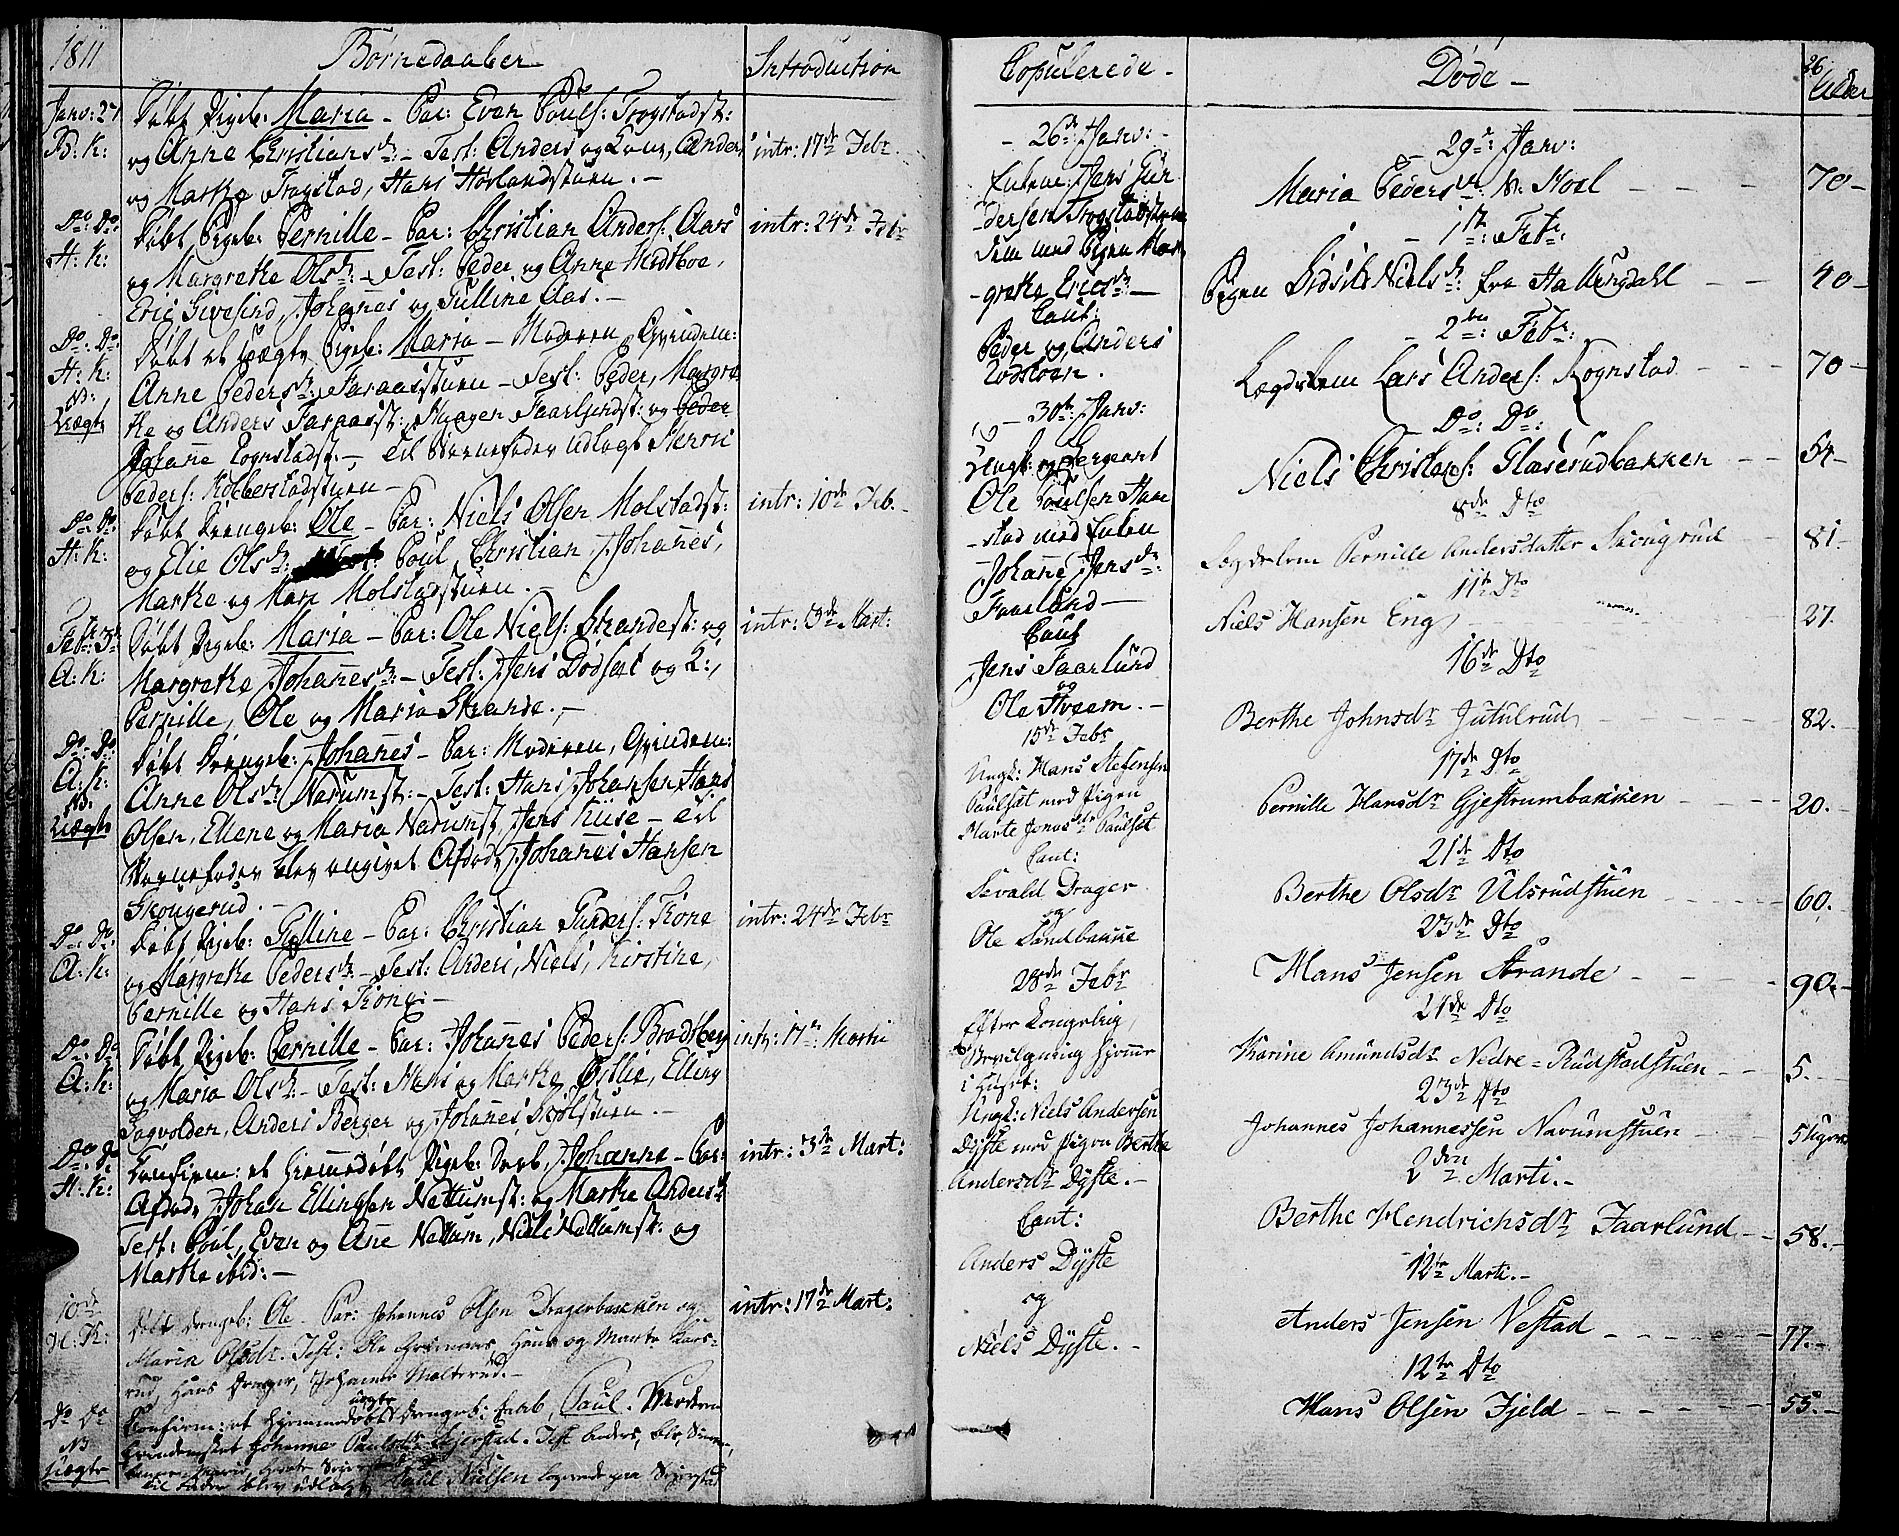 1811
Børnedaaber
Introduction
Janv: 27
B: K:
Døbt Pigeb: Maria - Par: Even Pouls: Trogstadst:
og Anne Christiansdr: - Test: Anders og Kone, Anders
og Marthe Trogstad, Hans Hørlandstuen. -
intr: 17de Febr.
Do: Do:
H: K:
Døbt Pigeb: Pernille - Par: Christian Anders: Aas
og Margrethe Olsdr: - Test: Peder og Anne Midtboe,
Eric Sivesind, Johanes og Gulline Aas. -
intr: 24de Febr
Do: Do:
H: K:
NB:
Uægte
Døbt et uægte Pigeb: Maria - Moderen Qvindem:
Anne Pedersdr: Faraasstuen - Test: Peder, Margre-
the og Anders Faraasst:, Haagen Faarlundst: og Peder
Johane Rognstadst: -, Til Barnefader udlagt Henric
Peders: Kolberstadstuen -
Do: Do:
H: K:
Døbt Drengeb: Ole - Par: Niels Olsen Molstadst:
og Elie Olsdr: Poul, Christian, Johanes,
Marthe og Mari Molstadstuen. -
intr: 10de Feb. -
Febr: 3de
A: K:
Døbt Pigeb: Maria - Par: Ole Niels: Strandest: og
Margrethe Johanesdr: - Test: Jens Dødset og K:,
Pernille, Ole og Maria Strande. -
intr: 3de Mart:
Do: Do:
A: K:
NB:
Uægte
Døbt Drengeb: Johanes - Par: Moderen, Qvindem:
Anne Olsdr: Narumst: - Test: Hans Johansen, Hans
Olsen, Ellene og Maria Narumst, Jens Kiise - Til
Barnefader blev angivet Afdøde Johanes Hansen
Skougerud. -
Do: Do:
A: K:
Døbt Pigeb: Gulline - Par: Christian Gunders: Trone
og Margrethe Pedersdr: - Test: Anders, Niels, Kirstine,
Pernille og Hans Trone: -
intr: 24de Febr
Do: Do:
A: K:
Døbt Pigeb: Pernille - Par: Johanes Peders: Bradtberg
og Maria Olsdr: - Test: Hans og Marthe Østlie, Elling
Sagvolden, Anders Berger og Johanes Skolstuen. -
intr: 17de Martii
Do Do
H: K:
Confirm: et hiemmedøbt Pigeb: Døb, Johanne - Par:
Afdøde Johan Ellingsen Nettumst: og Marthe Andersdr:
Test: Poul, Even og Ane Nettum, Niels Nettumst: og
Marthe ibid: -
intr: 3de Mart:
10de
H: K:
Døbt Drengeb: Ole - Par: Johannes Olsen Dragerbakken og
Maria Olsdr. Test: Ole Grimaas, Hans og Marte Kors-
rud, Hans Drager, Johanes Malterud. -
intr: 17de Mart:
Do Do
NB
Uægte
Confirm: et hjemmedøbt uægte Drengeb: Paul. Moderen
Qvindemsket Johanne Paulsdr Seierstad. Test Anders,
til Fader blev udlagt Paul Nielsen logerende paa Seierstad
Copulerede -
- 26de Janv: -
Enkem: Jens Gun-
dersen Trogstadstuen
dem med Pigen Mar-
-grethe Ericsdr: -
Caut:
Peder og Anders
Rodskoen.
- 30te: Janv:
Ungk: og Sergeant
Ole Poulsen Ham
-stad med Enken
Johane Jensdr:
Faarlund -
Caut
Jens Faarlund
og
Ole Hveem. -
15de Febr
Ungk: Hans Stefensen
Paulset med Pigen
Marte Jonasdr Paulset
Caut:
Sevald Drager
og
Ole Sandbakke
28de Febr
Efter Kongelig
Bevilgning hjemme
i Huset:
Ungk: Niels Andersen
Dyste med Pigen Berthe
Andersdr Dyste. -
Caut:
Anders Dyste
og
Niels Dyste. -
Døde -
26
Alder
- 29de: Janv:
Maria Pedersdr: N: Hoel - - - 70 -
- 1ste: Febr:
Pigen Sidsils Nielsdr: fra Hallingdahl - - 40 -
- 2den: Febr:
Lægdslem Lars Anders: Rognstad - - - 70 -
Do: Do:
Niels Christophs: Glæserudbakken - - 54 -
8de Dto
Lægdslem Pernille Andersdatter Skougrud - 81. -
11te Dto
Niels Hansen Eng - - - 27.
16de Dto
Berthe Johnsdr Jutulrud - - - - 82. -
17de Dto
Pernille Hansdr Gjestrumbakken - - - 20. -
21de Dto
Berthe Olsdr Ulsrudstuen - - - - 60. -
23de Dto
Hans Jensen Strande - - - 90. -
24de Dto
Karine Amundsdr Nedre = Rudstadstuen - - 5. -
23de Dto
Johannes Johannessen Narumstuen - - 5 Uger
2den Marti. -
Berthe Hendrichsdr Faarlund - - 58. -
12te Marti. -
Anders Jensen Nestad - - - - - 77. -
12te Dto
Hans Olsen Fjeld - - - - - 55. -